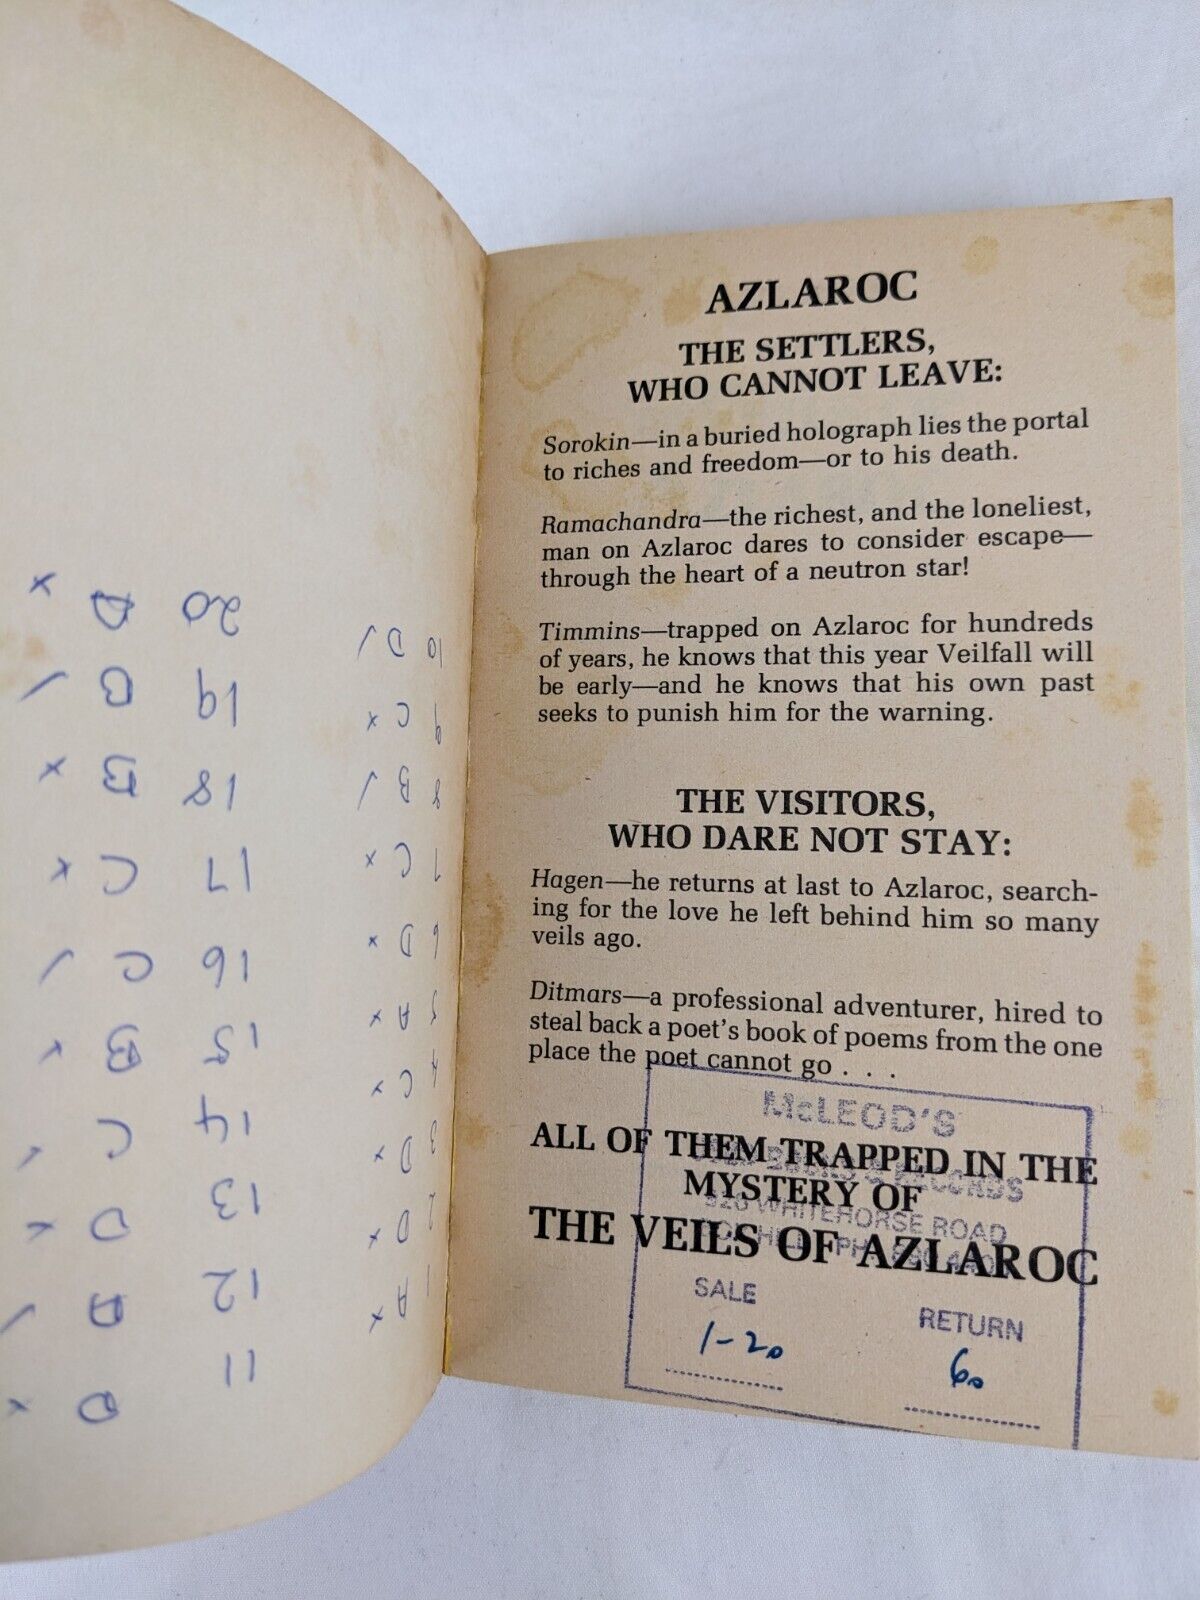 1 A x
2 D x
3 D x
4 C x
5 A x
6 D x
7 C x
8 B ✓
9 C x
10 D ✓
11 D x
12 A ✓
13 D x
14 C ✓
15 B x
16 C ✓
17 C x
18 B x
19 B ✓
20 x
AZLAROC
THE SETTLERS,
WHO CANNOT LEAVE:
Sorokin—in a buried holograph lies the portal
to riches and freedom—or to his death.
Ramachandra—the richest, and the loneliest,
man on Azlaroc dares to consider escape—
through the heart of a neutron star!
Timmins—trapped on Azlaroc for hundreds
of years, he knows that this year Veilfall will
be early—and he knows that his own past
seeks to punish him for the warning.
THE VISITORS,
WHO DARE NOT STAY:
Hagen—he returns at last to Azlaroc, search-
ing for the love he left behind him so many
veils ago.
Ditmars—a professional adventurer, hired to
steal back a poet's book of poems from the one
place the poet cannot go . . .
ALL OF THEM TRAPPED IN THE
MYSTERY OF
THE VEILS OF AZLAROC
McLEOD'S
RECORDS
WHITEHORSE ROAD
SALE RETURN
1-20 60